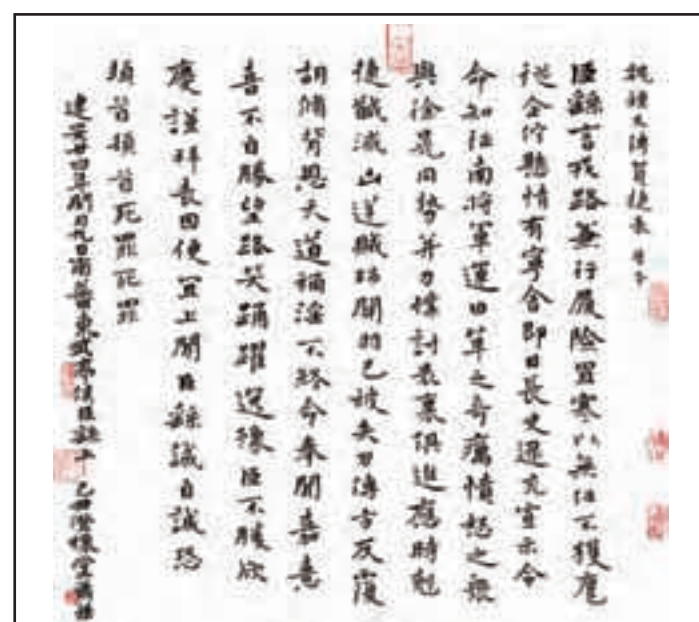 魏鍾太傅賀捷表
臣繇言戎路兼行履險冒寒以無任不獲扈
從企佇懸情有寧舍即日長史逮充宣示令
命知征南將軍運田單之奇厲憤怒之衆
與徐晃同勢并力撲討表裏俱進應時剋
捷馘滅凶逆賊帥關羽已被矢刃傅方反覆
胡脩背恩天道禍淫不終今奉聞嘉憙
喜不自勝望路笑踊躍逸豫臣不勝欣
慶謹拜表因便宜上聞臣繇誠自誠恐
頓首頓首死罪死罪
建安廿四年閏月九日南蕃東武亭侯臣繇上 己丑澄懷堂